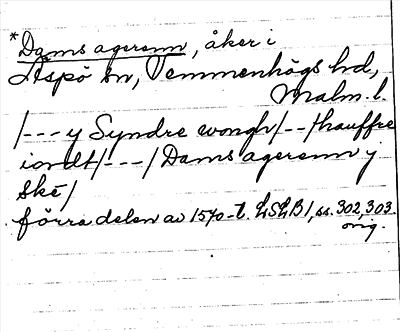 *Dams agerenn, åker i
Äspö sn, Vemmenhögs hd,
Malm. l.
/---y Syndre wongh/--/hauffre
iordt/---/Dams agerenn j
Ske/
förra delen av 1570-t. LSLB1, ss. 302, 303.
orig.